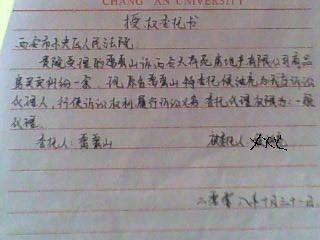 CHANG'AN UNIVERSITY
授权委托书
西安市未央区人民法院：
贵院受理的雷震山诉西安大有苑房地产有限公司商品
房买卖纠纷一案，现原告雷震山特委托侯延彪为我方诉讼
代理人，行使诉讼权利，履行诉讼义务委托代理权限为：一般
代理。
委托人：雷震山 被委托人
二零零八年十月三十一日